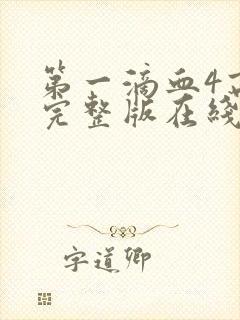 第一滴血4
完整版在线
字道卿